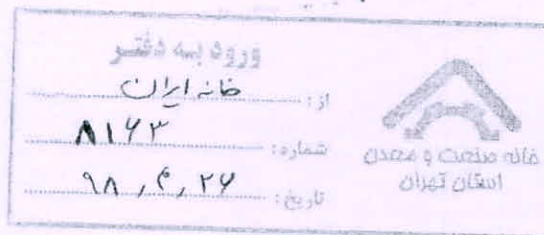 ورود به دفتر
از: خانه ایران
شماره: ۸۱۶۳
تاریخ: ۹۸,۴,۲۶
خانه صنعت و معدن
استان تهران